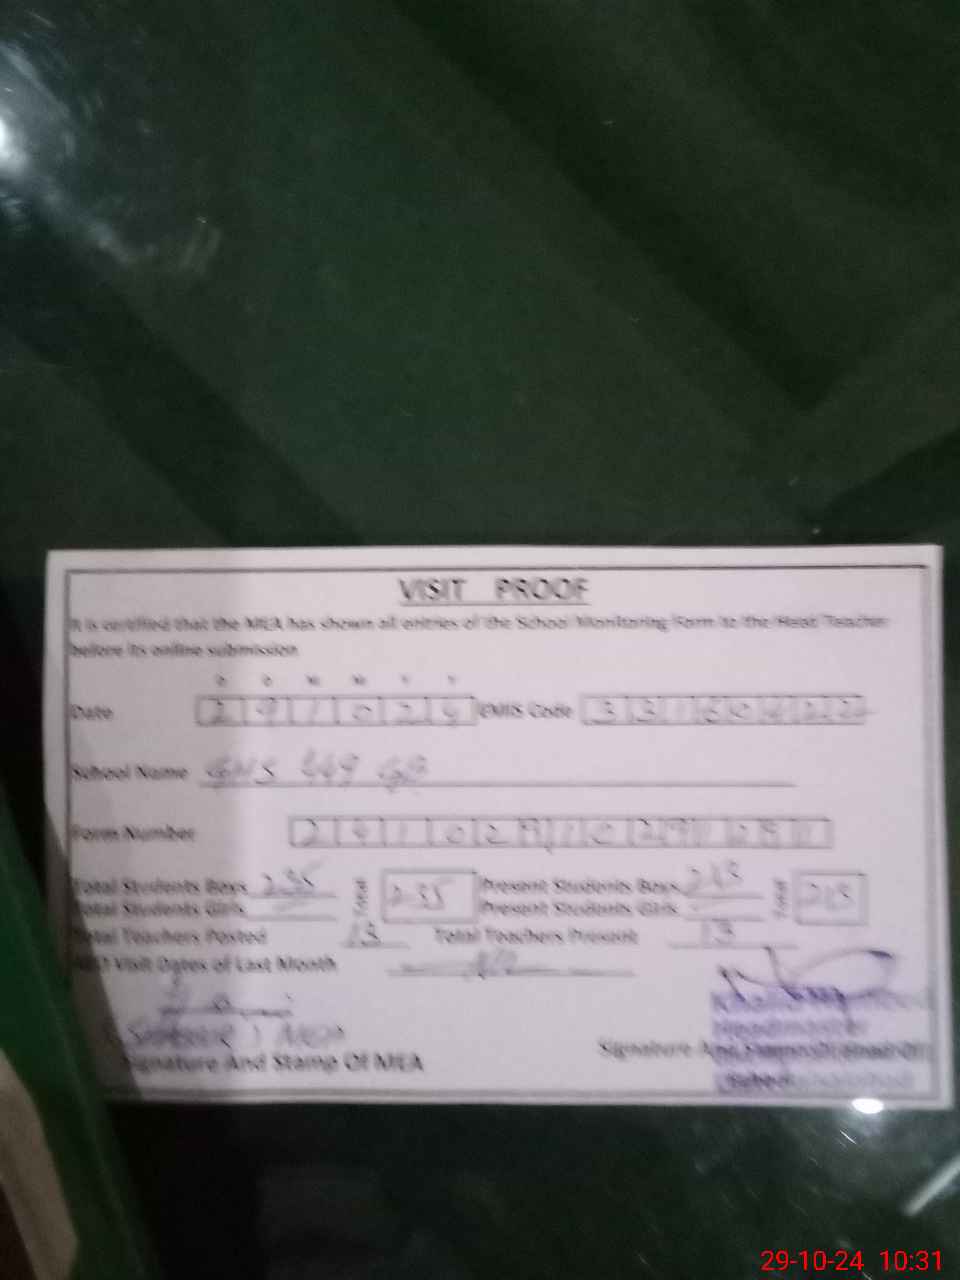 VISIT PROOF
It is certified that the MEA has shown all entries of the School Monitoring Form to the Head Teacher
before its online submission
D D M M Y Y
Date 291024 EMIS Code 33160422
School Name GHS 449 GB
Form Number
Total Students Boys 235 Total 235 Present Students Boys 213 Total 213
Total Students Girls Present Students Girls
Total Teachers Posted 13 Total Teachers Present 13
Visit Dates of Last Month
Signature And Stamp Of MEA
Headmaster
29-10-24 10:31